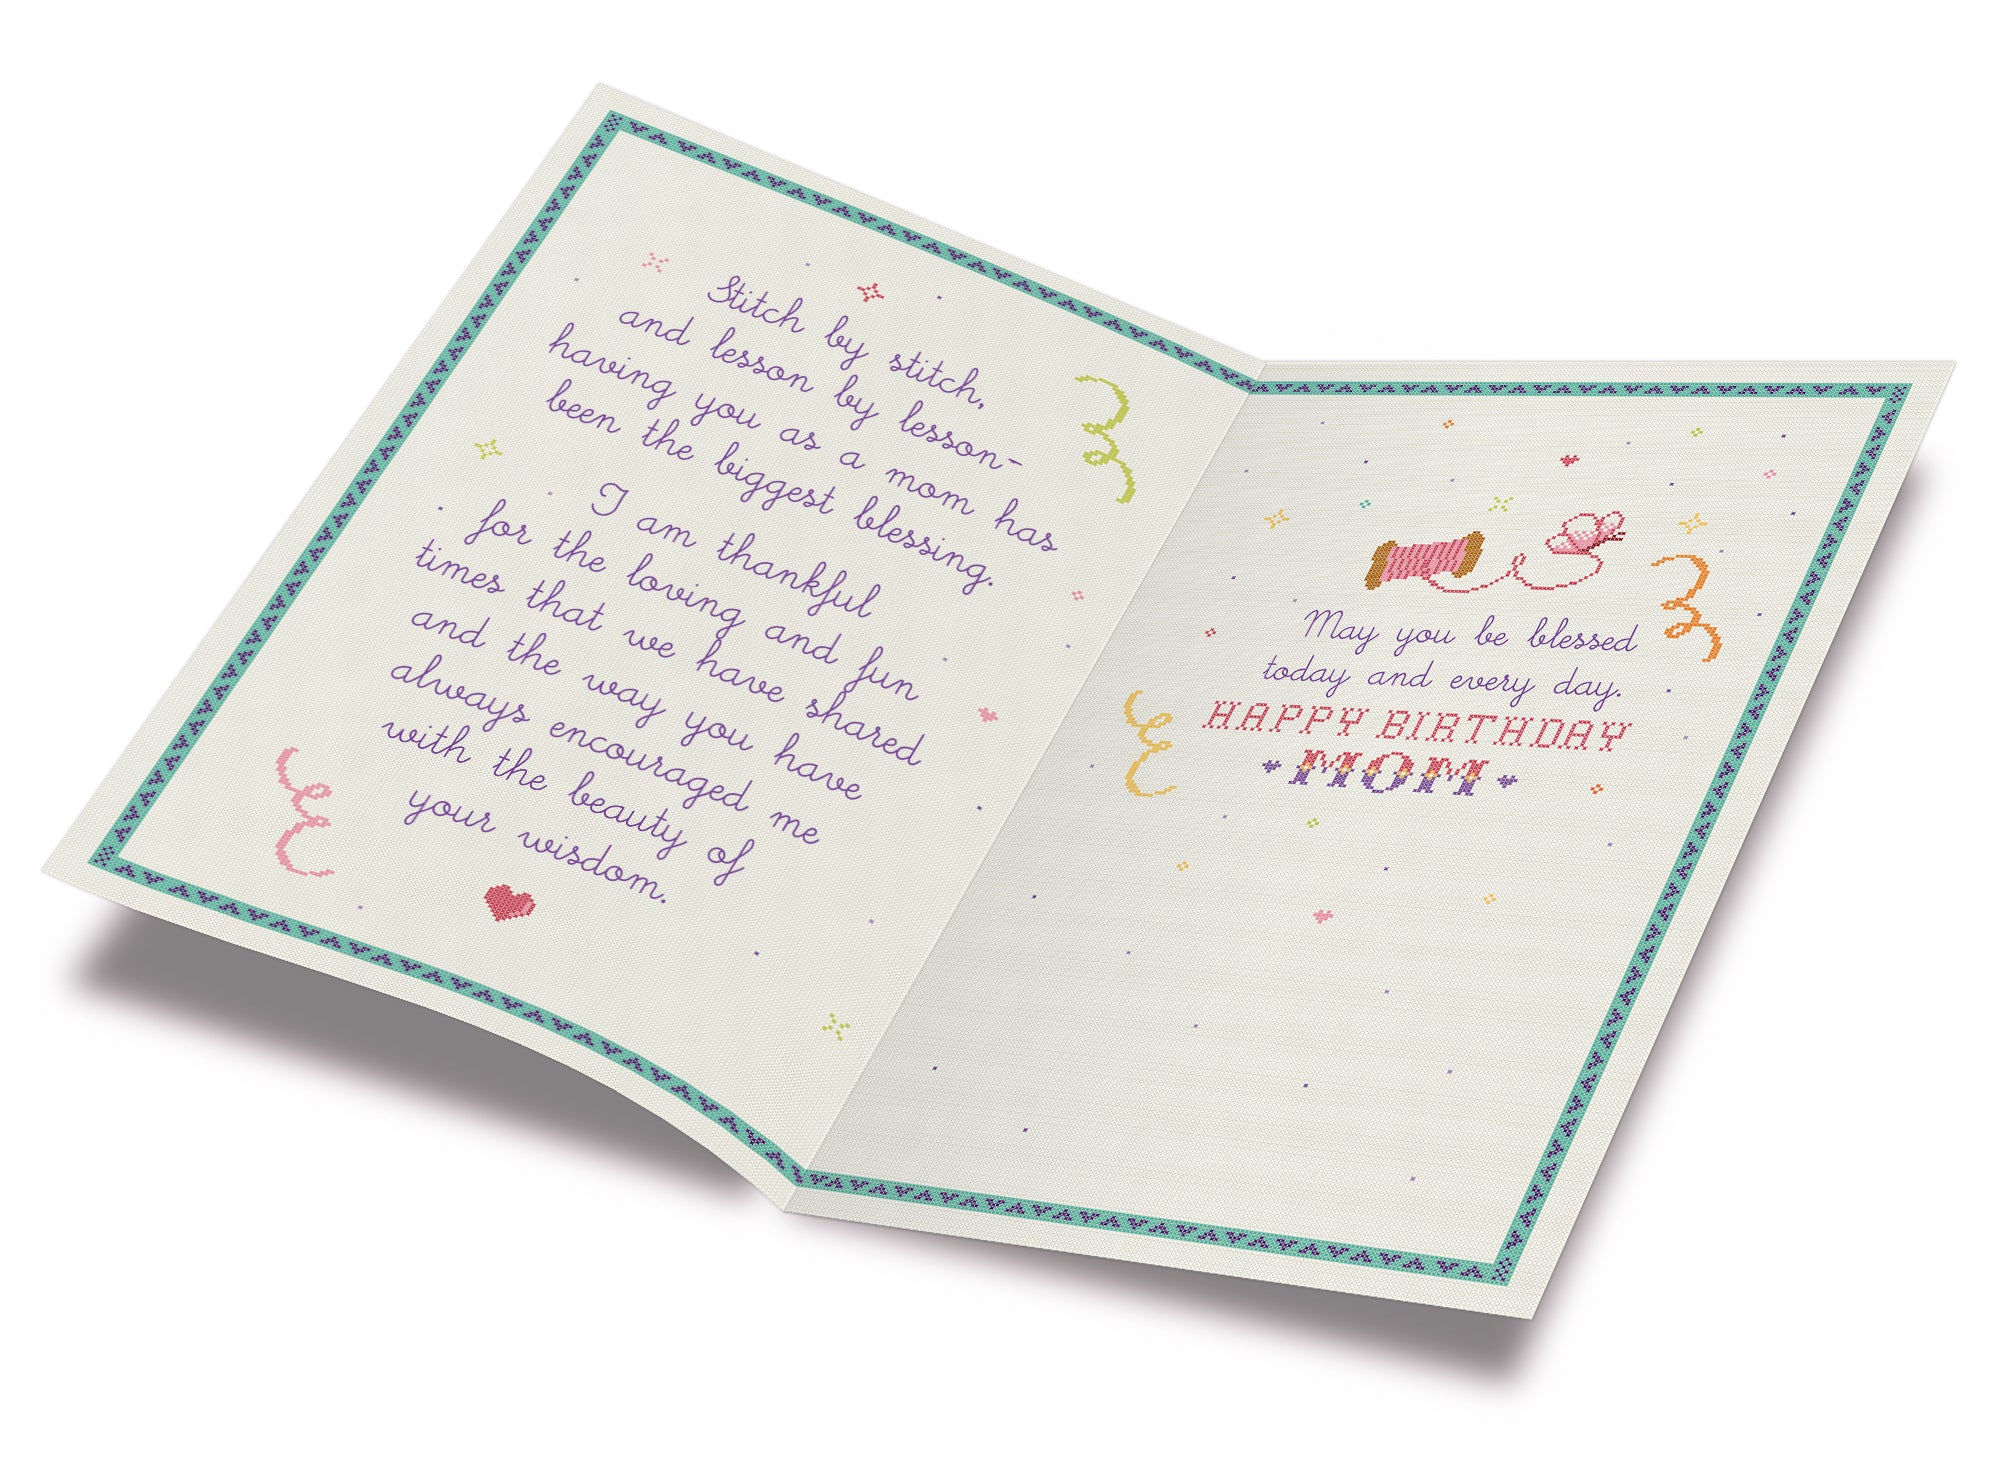 Stitch by stitch,
and lesson by lesson-
having you as a mom has
been the biggest blessing.
I am thankful
for the loving and fun
times that we have shared
and the way you have
always encouraged me
with the beauty of
your wisdom.
May you be blessed
today and every day.
HAPPY BIRTHDAY
MOM